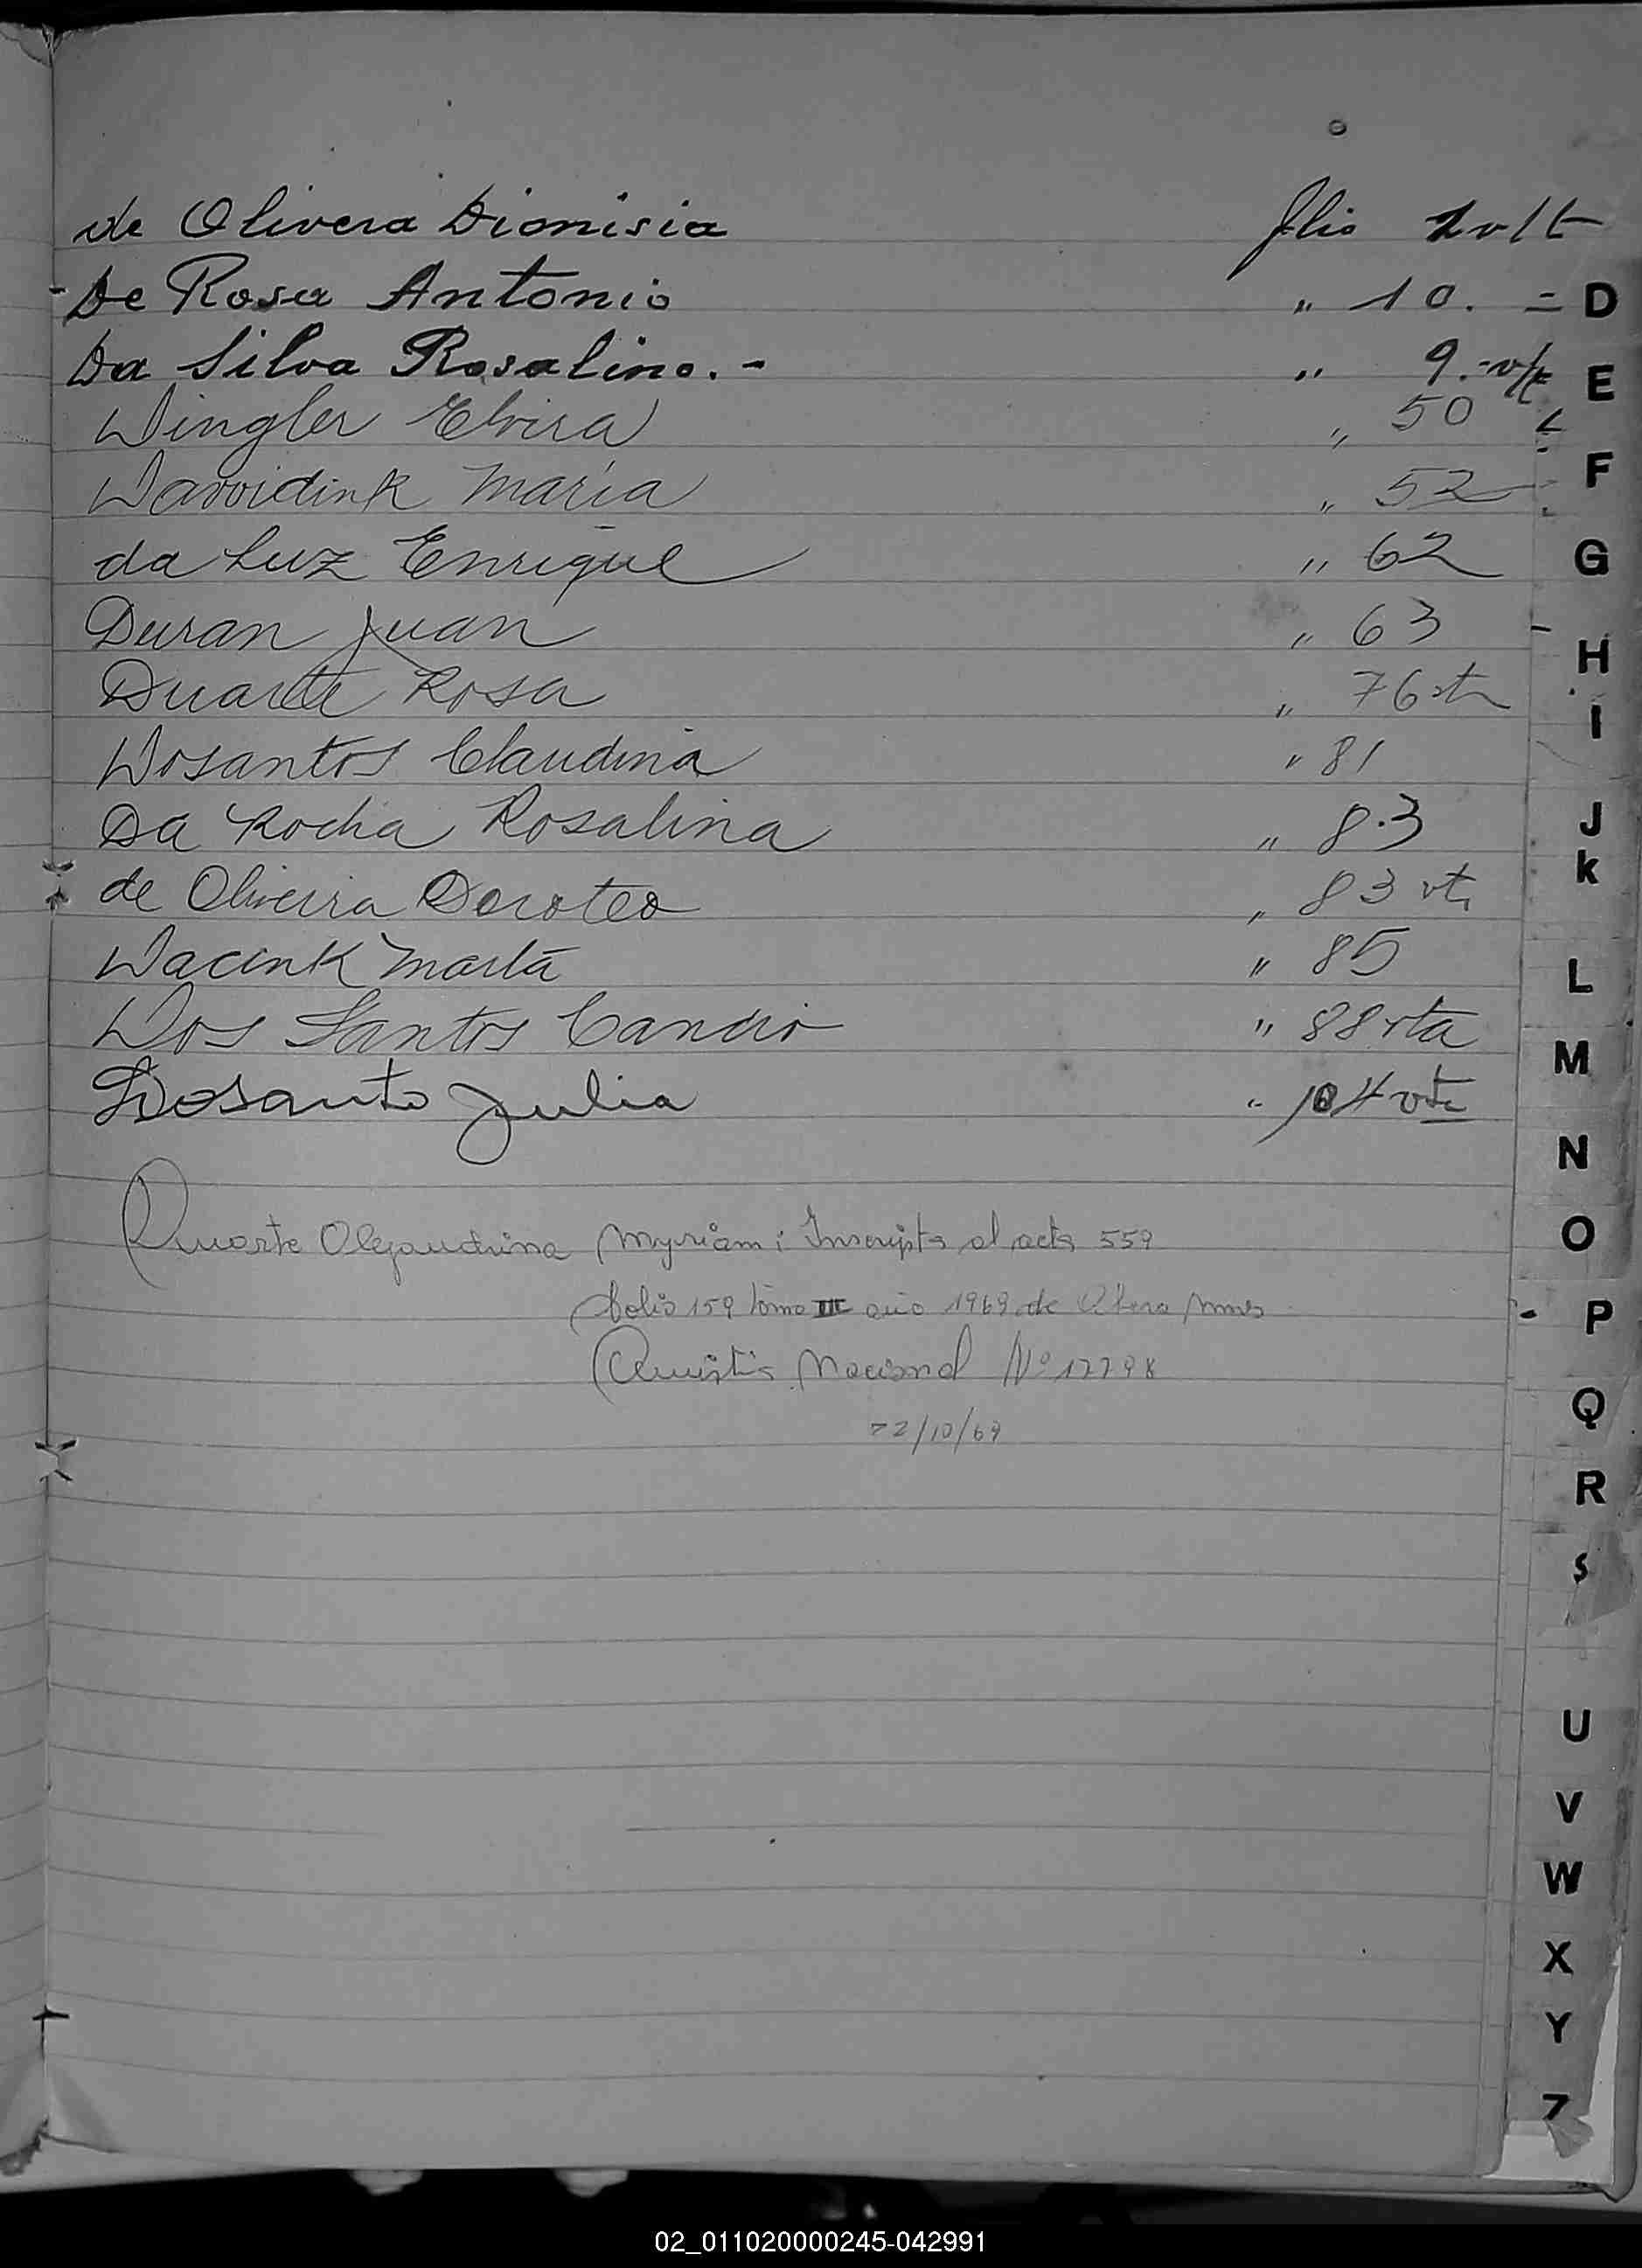 de Olivera Dionisia flio 2 vlt
De Rosa Antonio " 10. =
Da Silva Rosalino. - " 9.- v/t
Dingler Elvira " 50
Davvidink María " 52
da Luz Enrique " 62
Duran Juan " 63
Duarte Rosa " 76 vta
Dosantos Claudina " 81
Da Rocha Rosalina " 83
de Oliveira Doroteo " 83 vta
Dacink Marta " 85
Dos Santos Cancio " 88 vta
Dosanto Julia " 104 vta
Duarte Alejandrina Myriam: Inscripta al acta 559
folio 159 tomo III año 1969 de
Nacional Nº 12798
22/10/69
D
E
F
G
H
I
J
K
L
M
N
O
P
Q
R
S
U
V
W
X
Y
Z
02_011020000245-042991